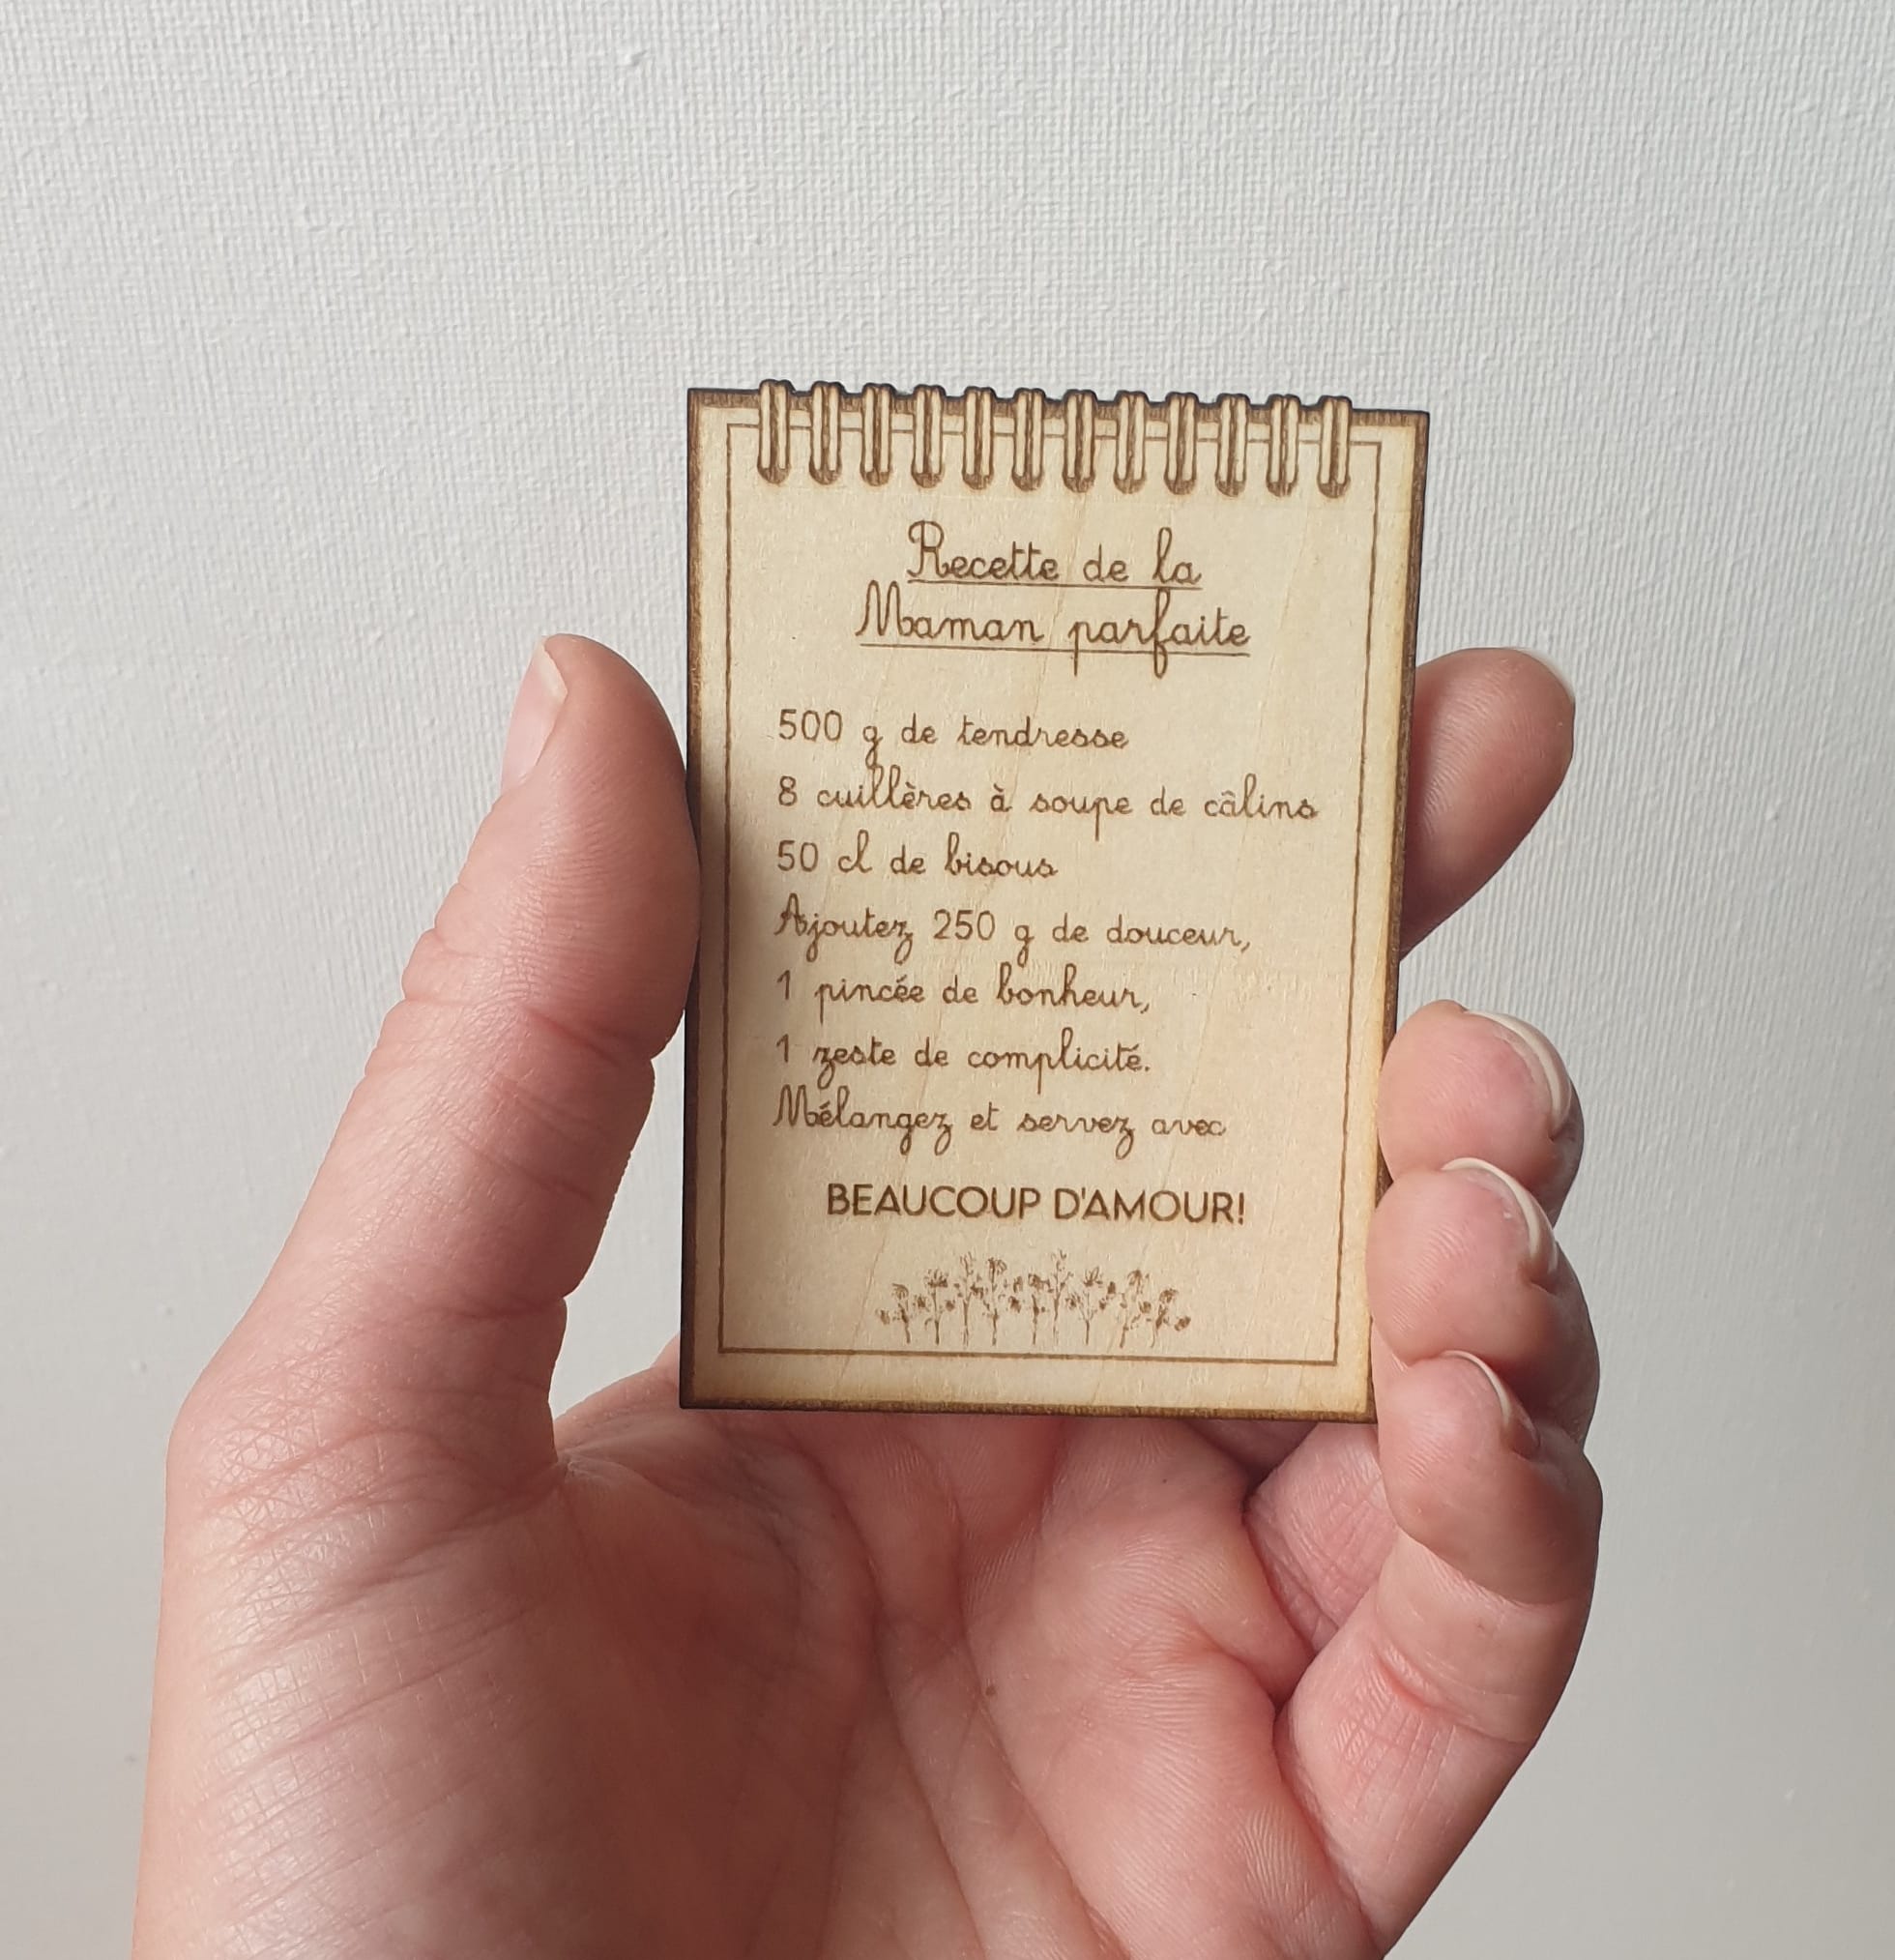 Recette de la
Maman parfaite
500 g de tendresse
8 cuillères à soupe de câlins
50 cl de bisous
Ajoutez 250 g de douceur,
1 pincée de bonheur,
1 zeste de complicité.
Mélangez et servez avec
BEAUCOUP D'AMOUR!